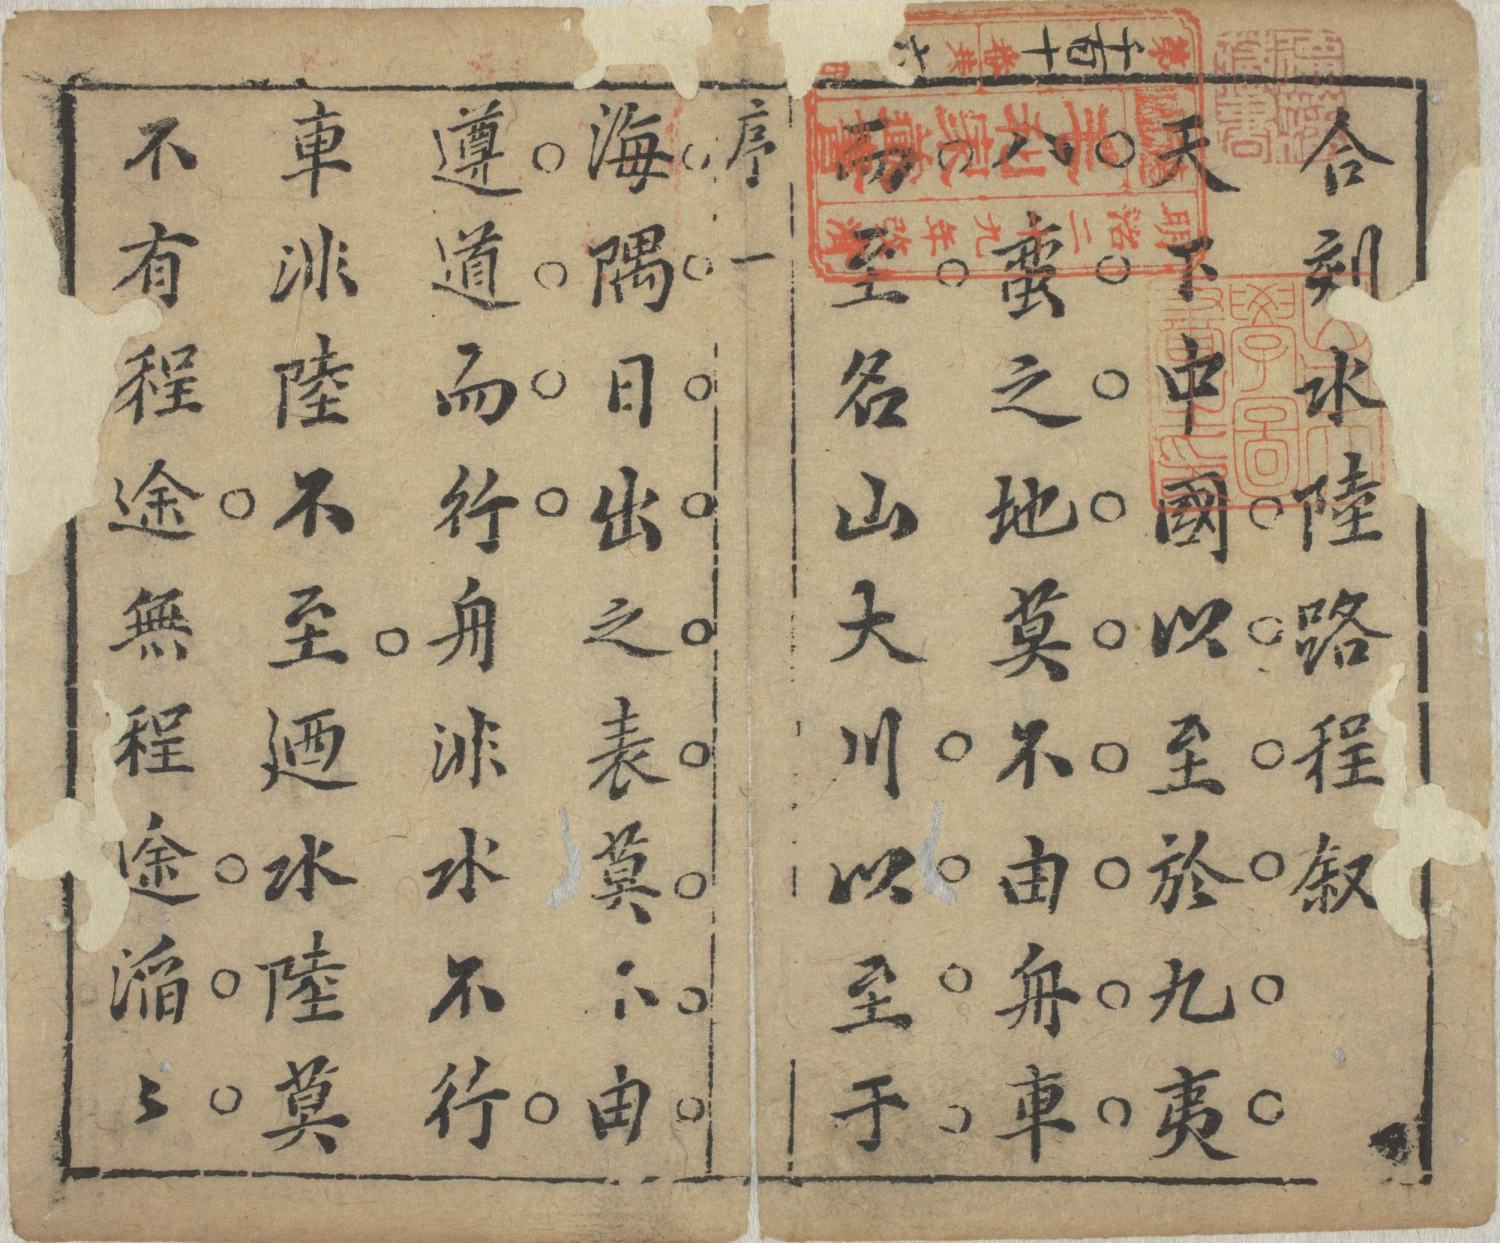 合刻水陸路程叙
天下中國以至於九夷
八蛮之地莫不由舟車
而至名山大川以至于
序一
海隅日出之表莫不由
遵道而行舟非水不行
車非陸不至廼水陸莫
不有程途無程途滔〻
明治二九年改濟